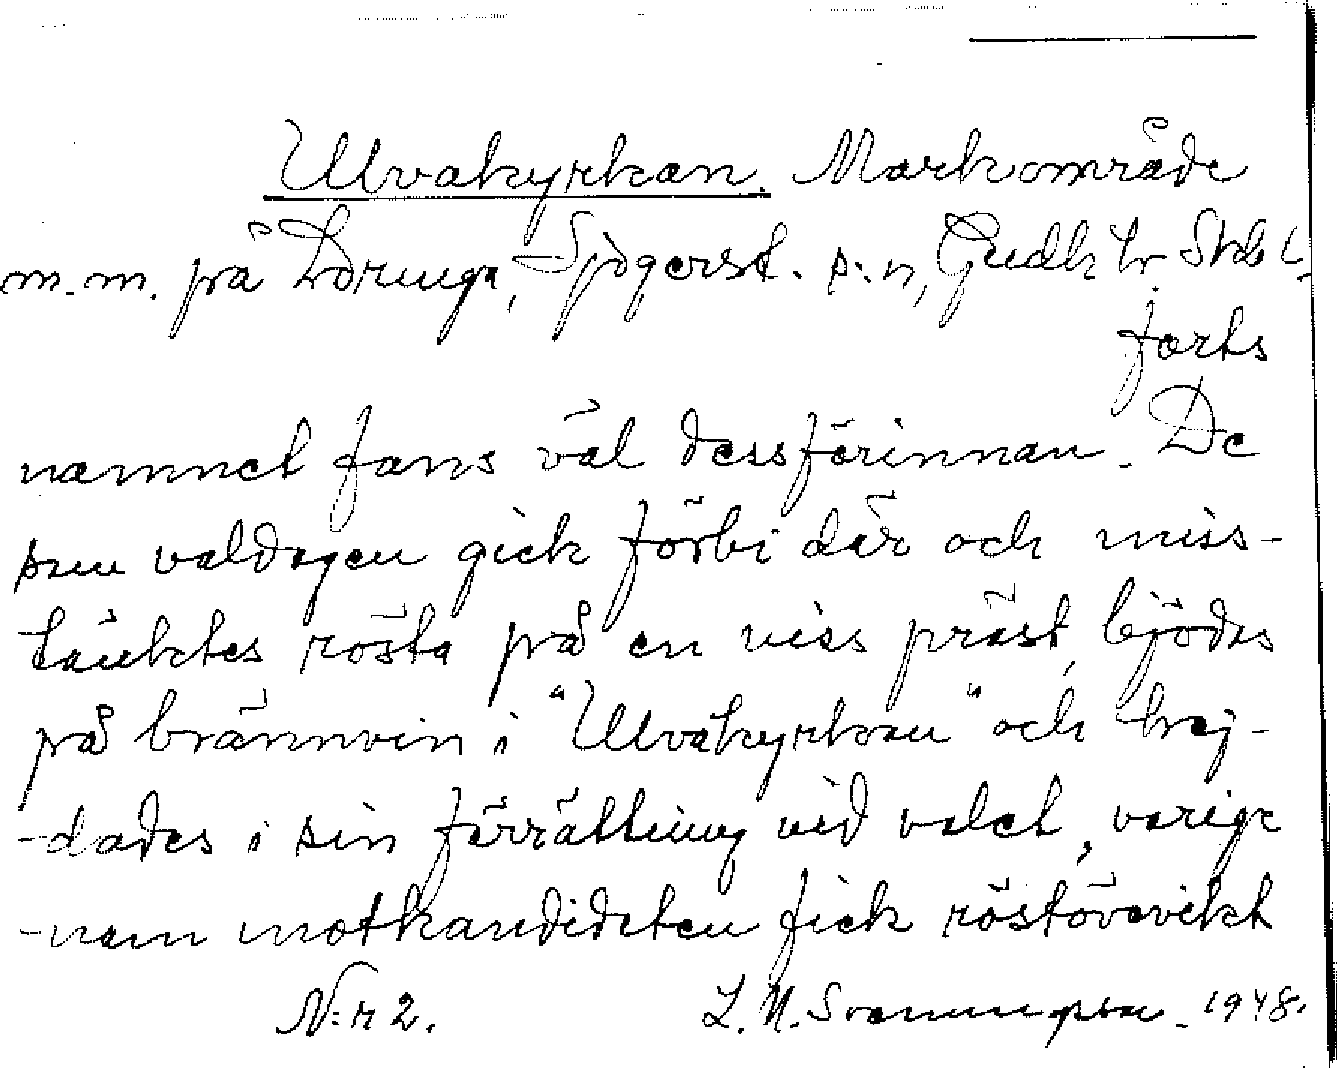 Ulvakyrkan. Markområde
m.m. på Loringa, Sjogerst. s:n, Gudh hr Skbl.
forts
namnet fans väl dessförinnan. De
som valdagen gick förbi där och miss-
tänktes rösta på en viss präst, bjödes
på brännvin i "Ulvakyrkan" och hej-
-dades i sin förrättning vid valet, varige
-nom motkandidaten fick röstövervikt
N:r 2. L. M. Svanungson. 1948.